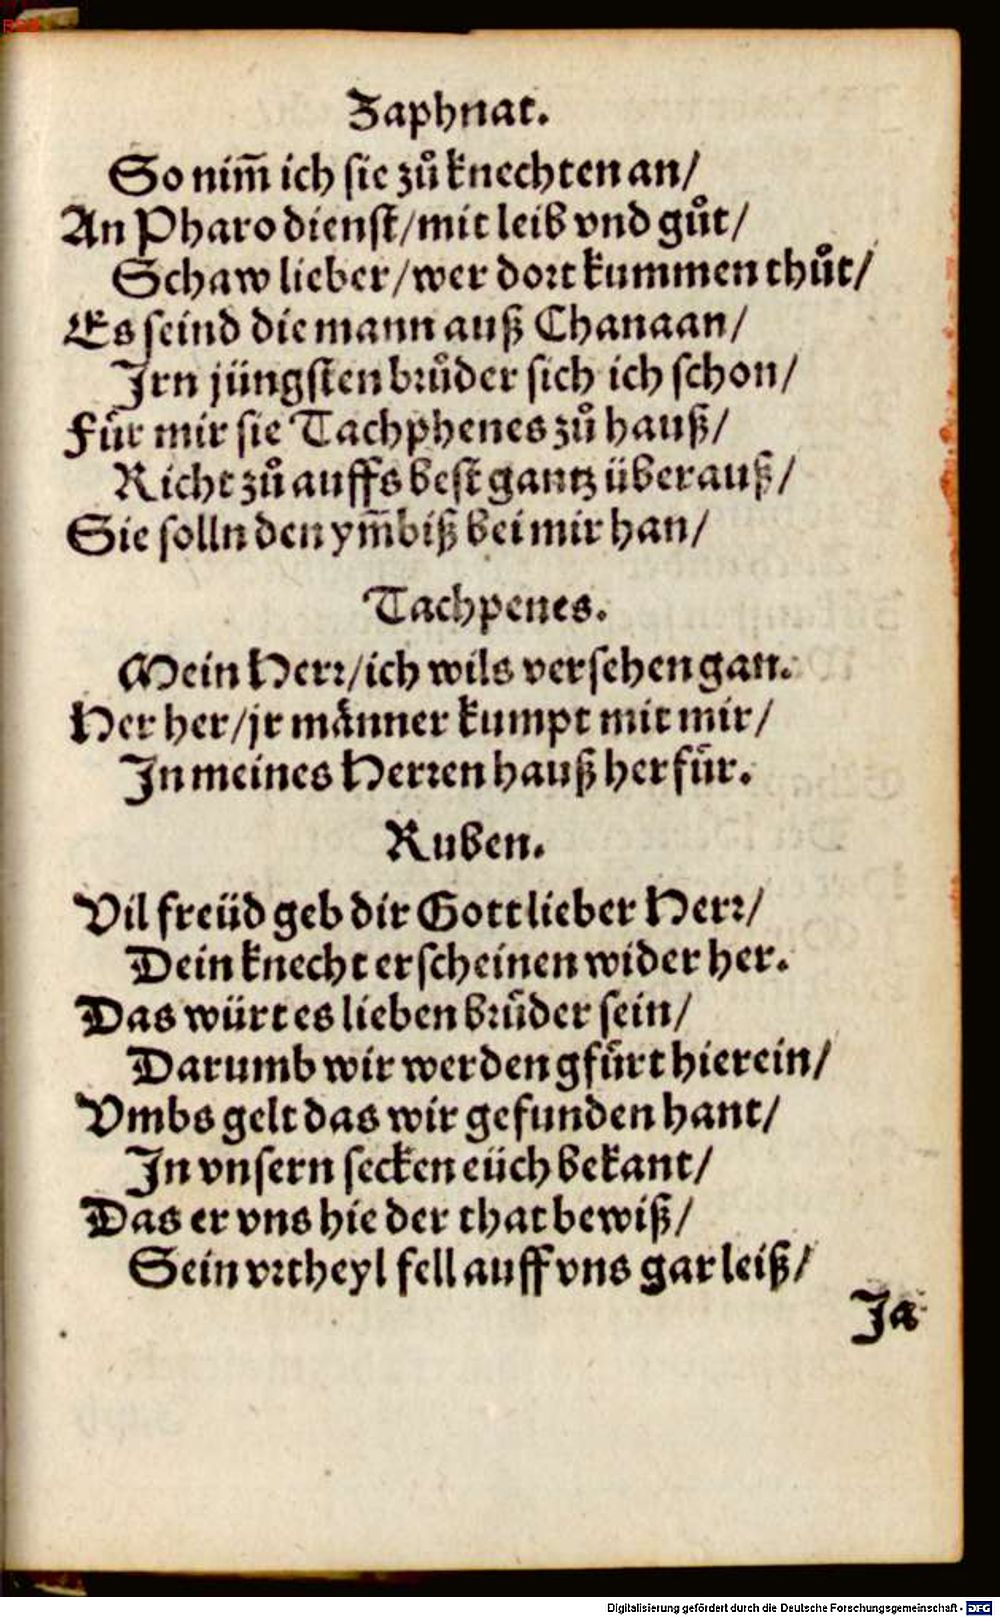 Zaphnat.
So nim̄ ich sie zů knechten an/
An Pharo dienst/mit leib vnd gůt/
Schaw lieber/wer dort kummen thůt/
Es seind die mann auß Chanaan/
Jrn jüngsten brůder sich ich schon/
Für mir sie Tachphenes zů hauß/
Richt zů auffs best gantz überauß/
Sie solln den ym̄biß bei mir han/
Tachpenes.
Mein Herr/ich wils versehen gan.
Her her/jr männer kumpt mit mir/
Jn meines Herren hauß herfür.
Ruben.
Vil freüd geb dir Gott lieber Herr/
Dein knecht erscheinen wider her.
Das würt es lieben brůder sein/
Darumb wir werden gfürt hierein/
Vmbs gelt das wir gefunden hant/
Jn vnsern secken eüch bekant/
Das er vns hie der that bewiß/
Sein vrtheyl fell auff vns gar leiß/
Ja
Digitalisierung gefördert durch die Deutsche Forschungsgemeinschaft - DFG